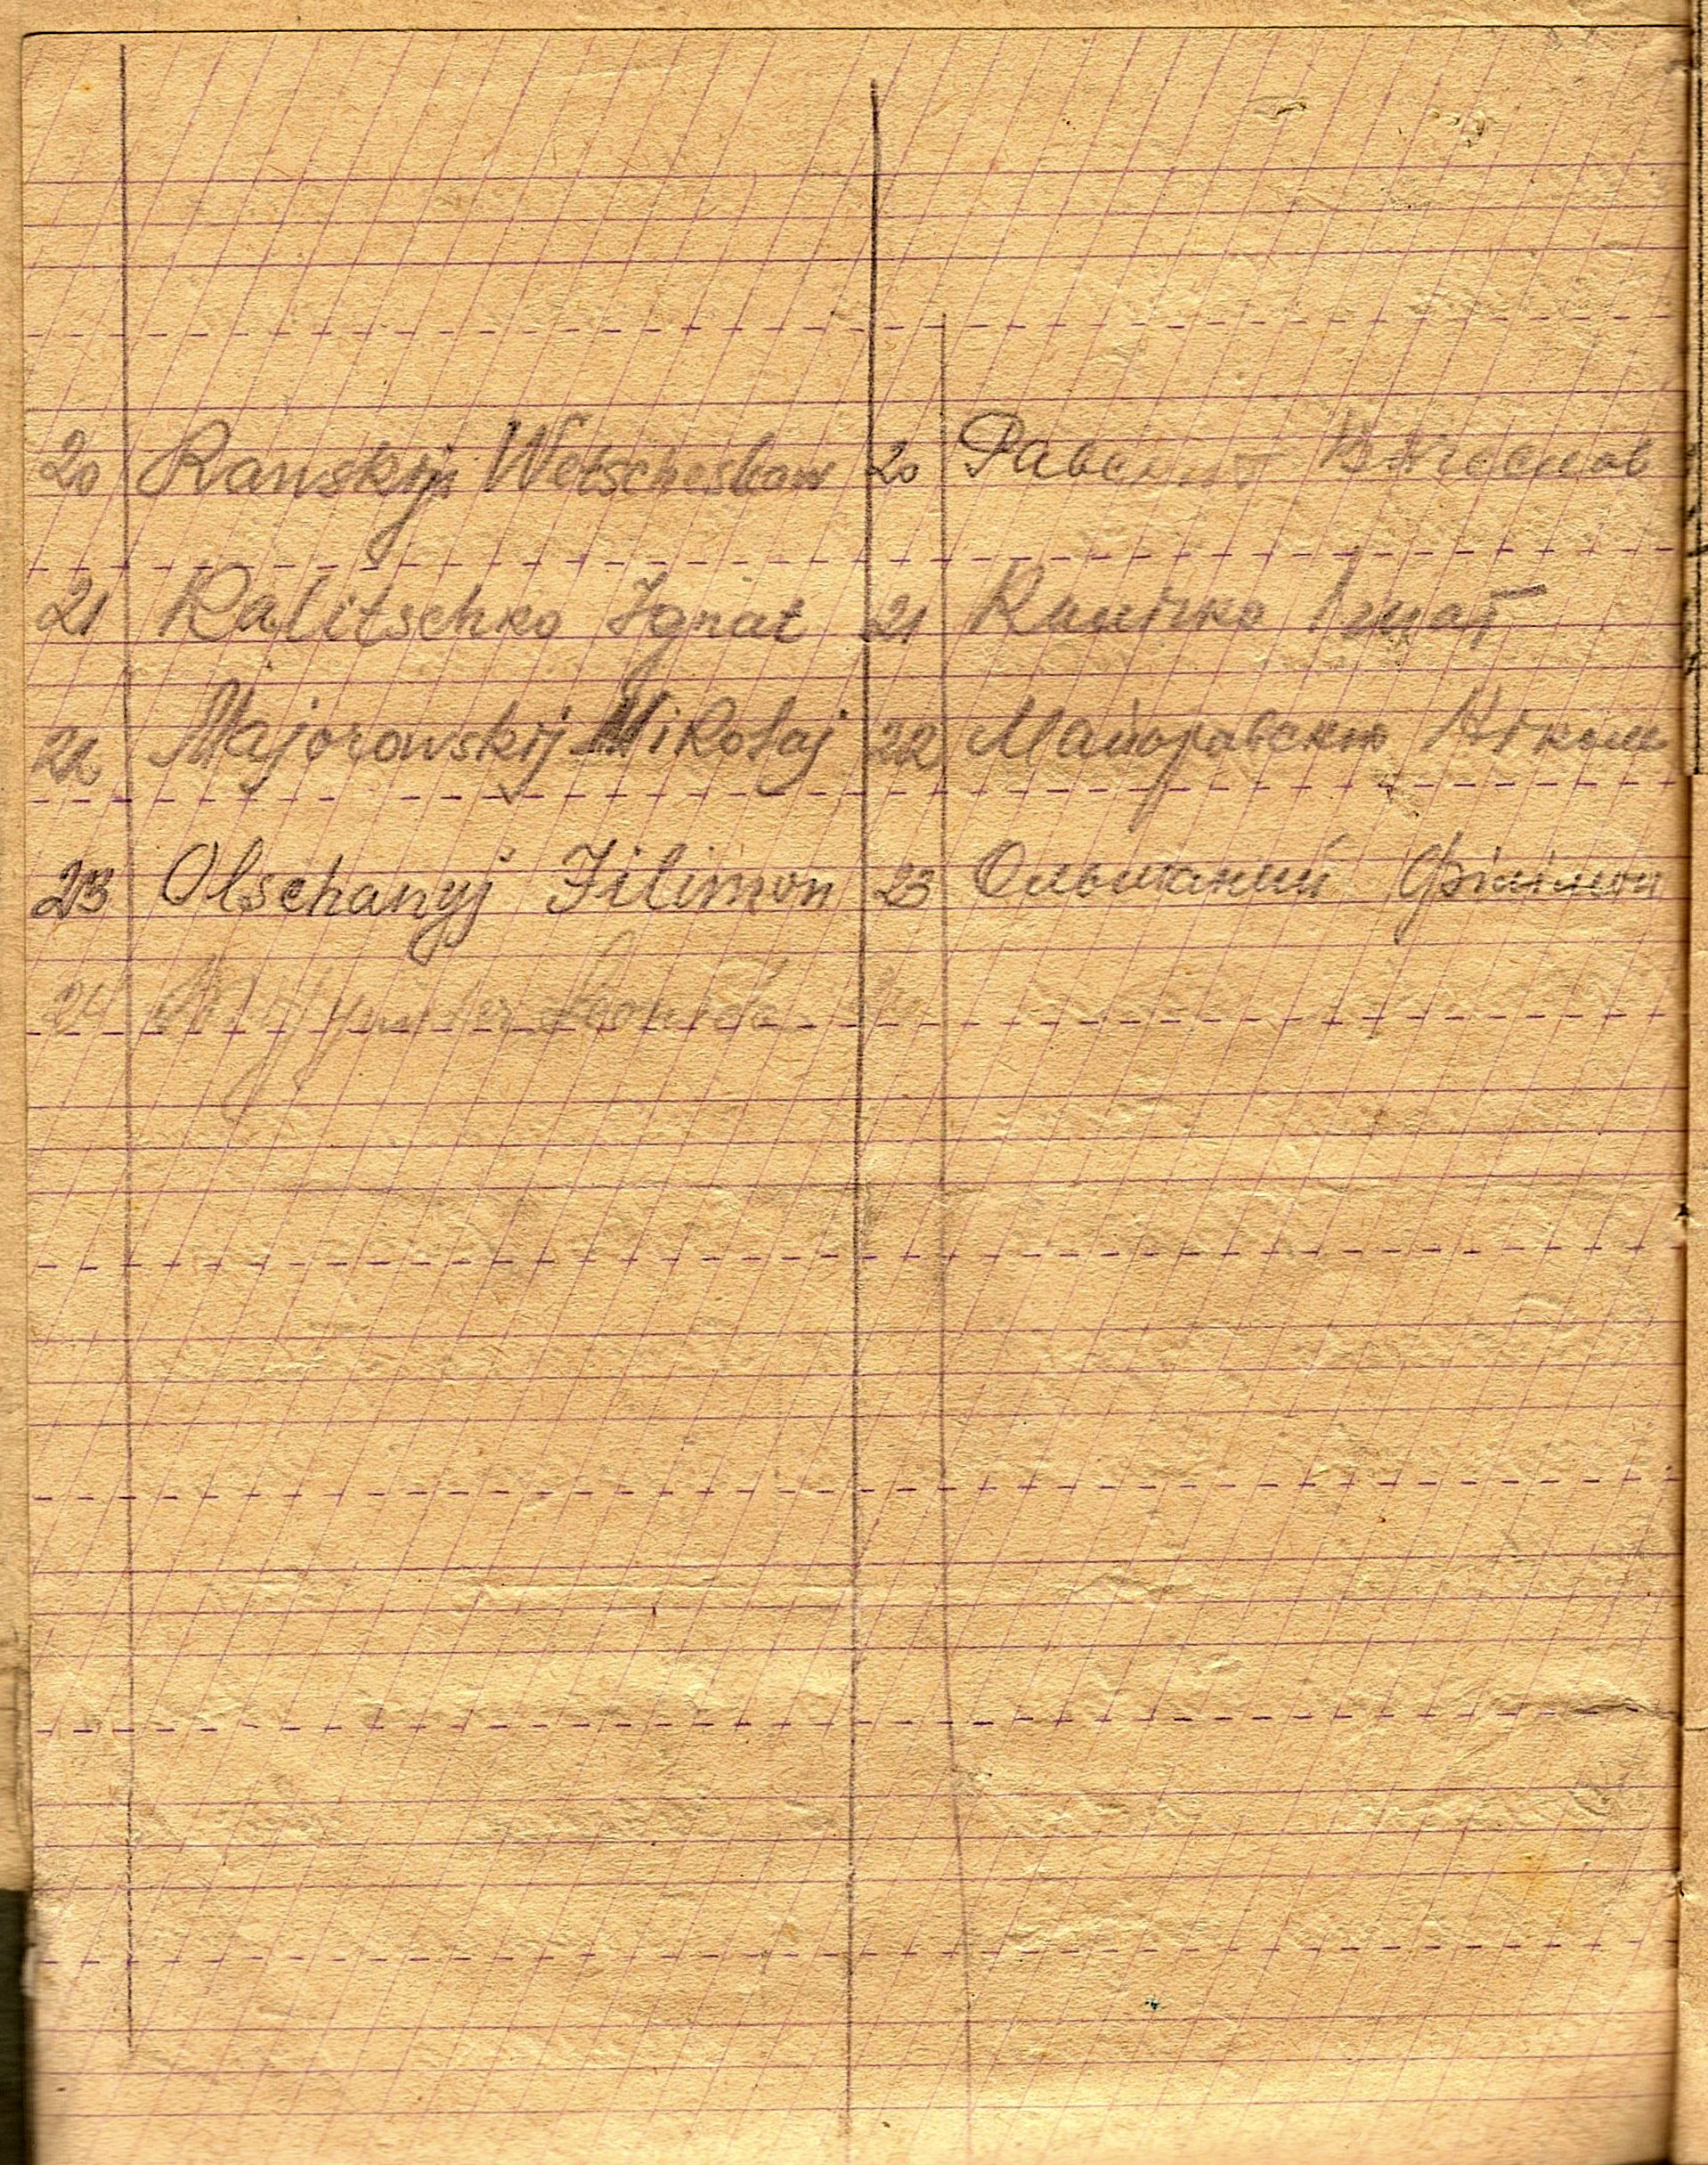 20 Rawskyj Wetscheslaw 20 Равский Вячеслав
21 Kalitschko Ignat 21 Калічко Ігнат
22 Majorowskij Mikolaj 22 Майоровский
23 Olschanyj Filimon 23 Ольшаний Філімон
24